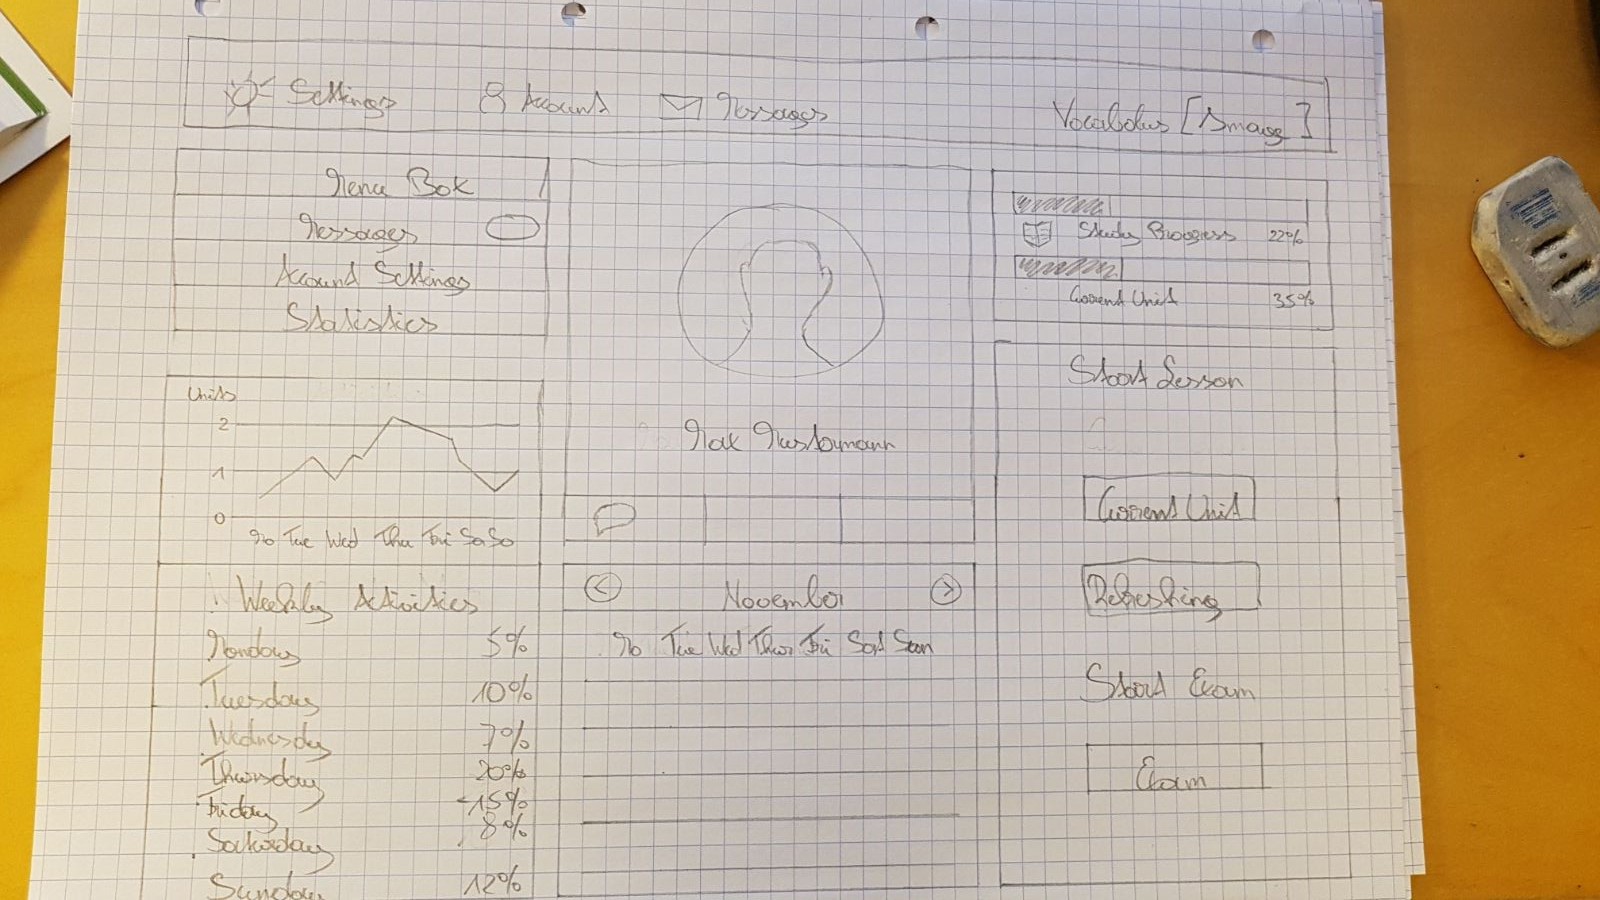 Settings Account Messages Vocabolus [Image]
Menu Box
Messages
Account Settings
Statistics
Units
2
1
0
Mo Tue Wed Thu Fri Sa So
Weekly Activities
Monday 5%
Tuesday 10%
Wednesday 7%
Thursday 20%
Friday 15%
Saturday 8%
Sunday 12%
Max Mustermann
November
Mo Tue Wed Thur Fri Sat Sun
Study Progress 22%
Current Unit 35%
Start Lesson
Current Unit
Refreshing
Start Exam
Exam